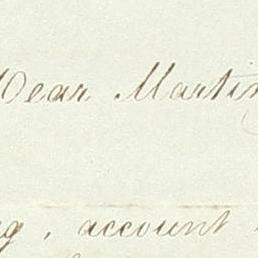 Dear Martin
, account